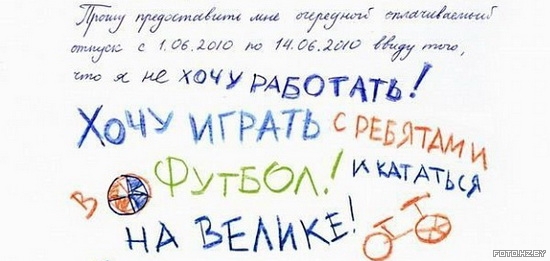 Прошу предоставить мне очередной оплачиваемый
отпуск с 1.06.2010 по 14.06.2010 ввиду того,
что я не ХОЧУ РАБОТАТЬ!
ХОЧУ ИГРАТЬ С РЕБЯТАМИ
В ФУТБОЛ! И КАТАТЬСЯ
НА ВЕЛИКЕ!
FOTO.HZ.BY